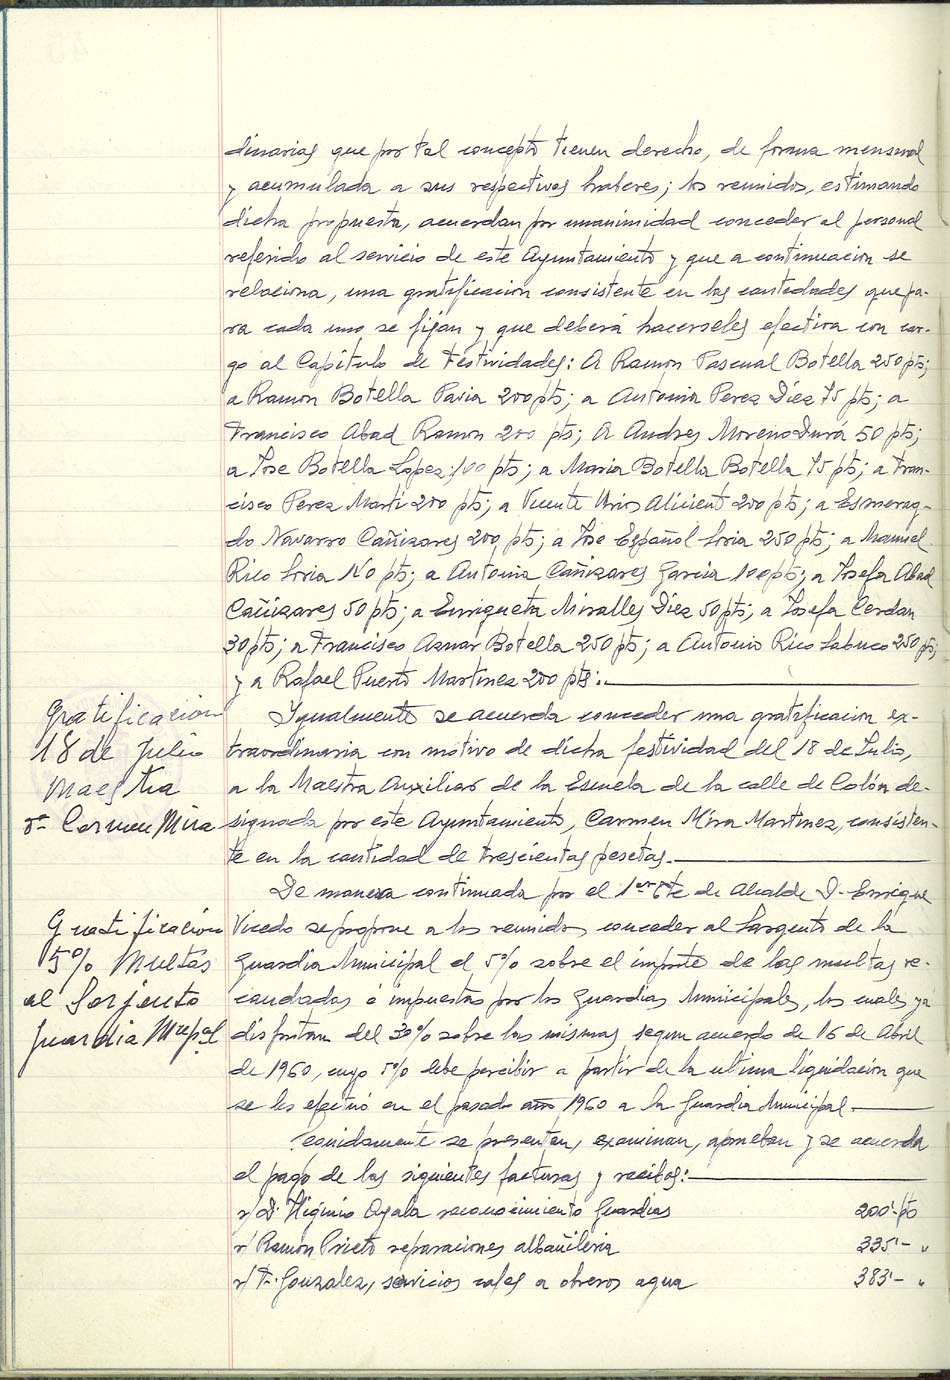 dinarias que por tal concepto tienen derecho, de forma mensual
y acumulada a sus respectivos haberes; los reunidos, estimando
dicha propuesta, acuerdan por unanimidad conceder al personal
referido al servicio de este Ayuntamiento y que a continuacion se
relaciona, una gratificacion consistente en las cantidades que pa-
ra cada uno se fijan y que deberá hacerseles efectiva con car-
go al Capítulo de Festividades: A Ramon Pascual Botella 250 pts;
a Ramon Botella Pavia 200 pts; a Antonia Perez Díez 75 pts; a
Francisco Abad Ramon 200 pts; A Andres Moreno Durá 50 pts;
a Jose Botella Lopez; 100 pts; a Maria Botella Botella 75 pts; a Fran-
cisco Perez Marti 200 pts; a Vicente Urios Alicient 200 pts; a Esmerag-
do Navarro Cañizares 200 pts; a Jose Español Soria 250 pts; a Manuel
Rico Soria pts; a Antonia Cañizares Garcia 100 pts; a Josefa Abad
Cañizares 50 pts; a Enriqueta Miralles Díez 50 pts; a Josefa Cerdan
30 pts; a Francisco Aznar Botella 250 pts; a Antonio Rico Sabuco 250 pts;
y a Rafael Puerto Martinez 200 pts:.
Gratificacion
18 de Julio
Maestra
Carmen Mira
Igualmente se acuerda conceder una gratificacion ex-
traordinaria con motivo de dicha festividad del 18 de Julio,
a la Maestra Auxiliar de la Escuela de la calle de Colón de-
signada por este Ayuntamiento, Carmen Mira Martinez, consisten-
te en la cantidad de trescientas pesetas.
De manera continuada por el 1er Tte de Alcalde D. Enrique
Gratificación
5% Multas
al Sarjento
Guardia Mupal
Vicedo se propone a los reunidos conceder al Sargento de la
Guardia Municipal el 5% sobre el importe de las multas re-
caudadas o impuestas por los Guardias Municipales, los cuales ya
disfrutan del 30% sobre las mismas segun acuerdo de 16 de Abril
de 1960, cuyo 5% debe percibir a partir de la ultima liquidación que
se les efectuó en el pasado año 1960 a la Guardia Municipal.
Seguidamente se presentan, examinan, aprueban y se acuerda
el pago de las siguientes facturas y recibos:
r/ D. Higinio Ayala reconocimiento Guardias 200'- pts
r/ Ramon Prieto reparaciones albañileria 335'- "
r/ F. Gonzalez, servicios cafes a obreros agua 383'- "